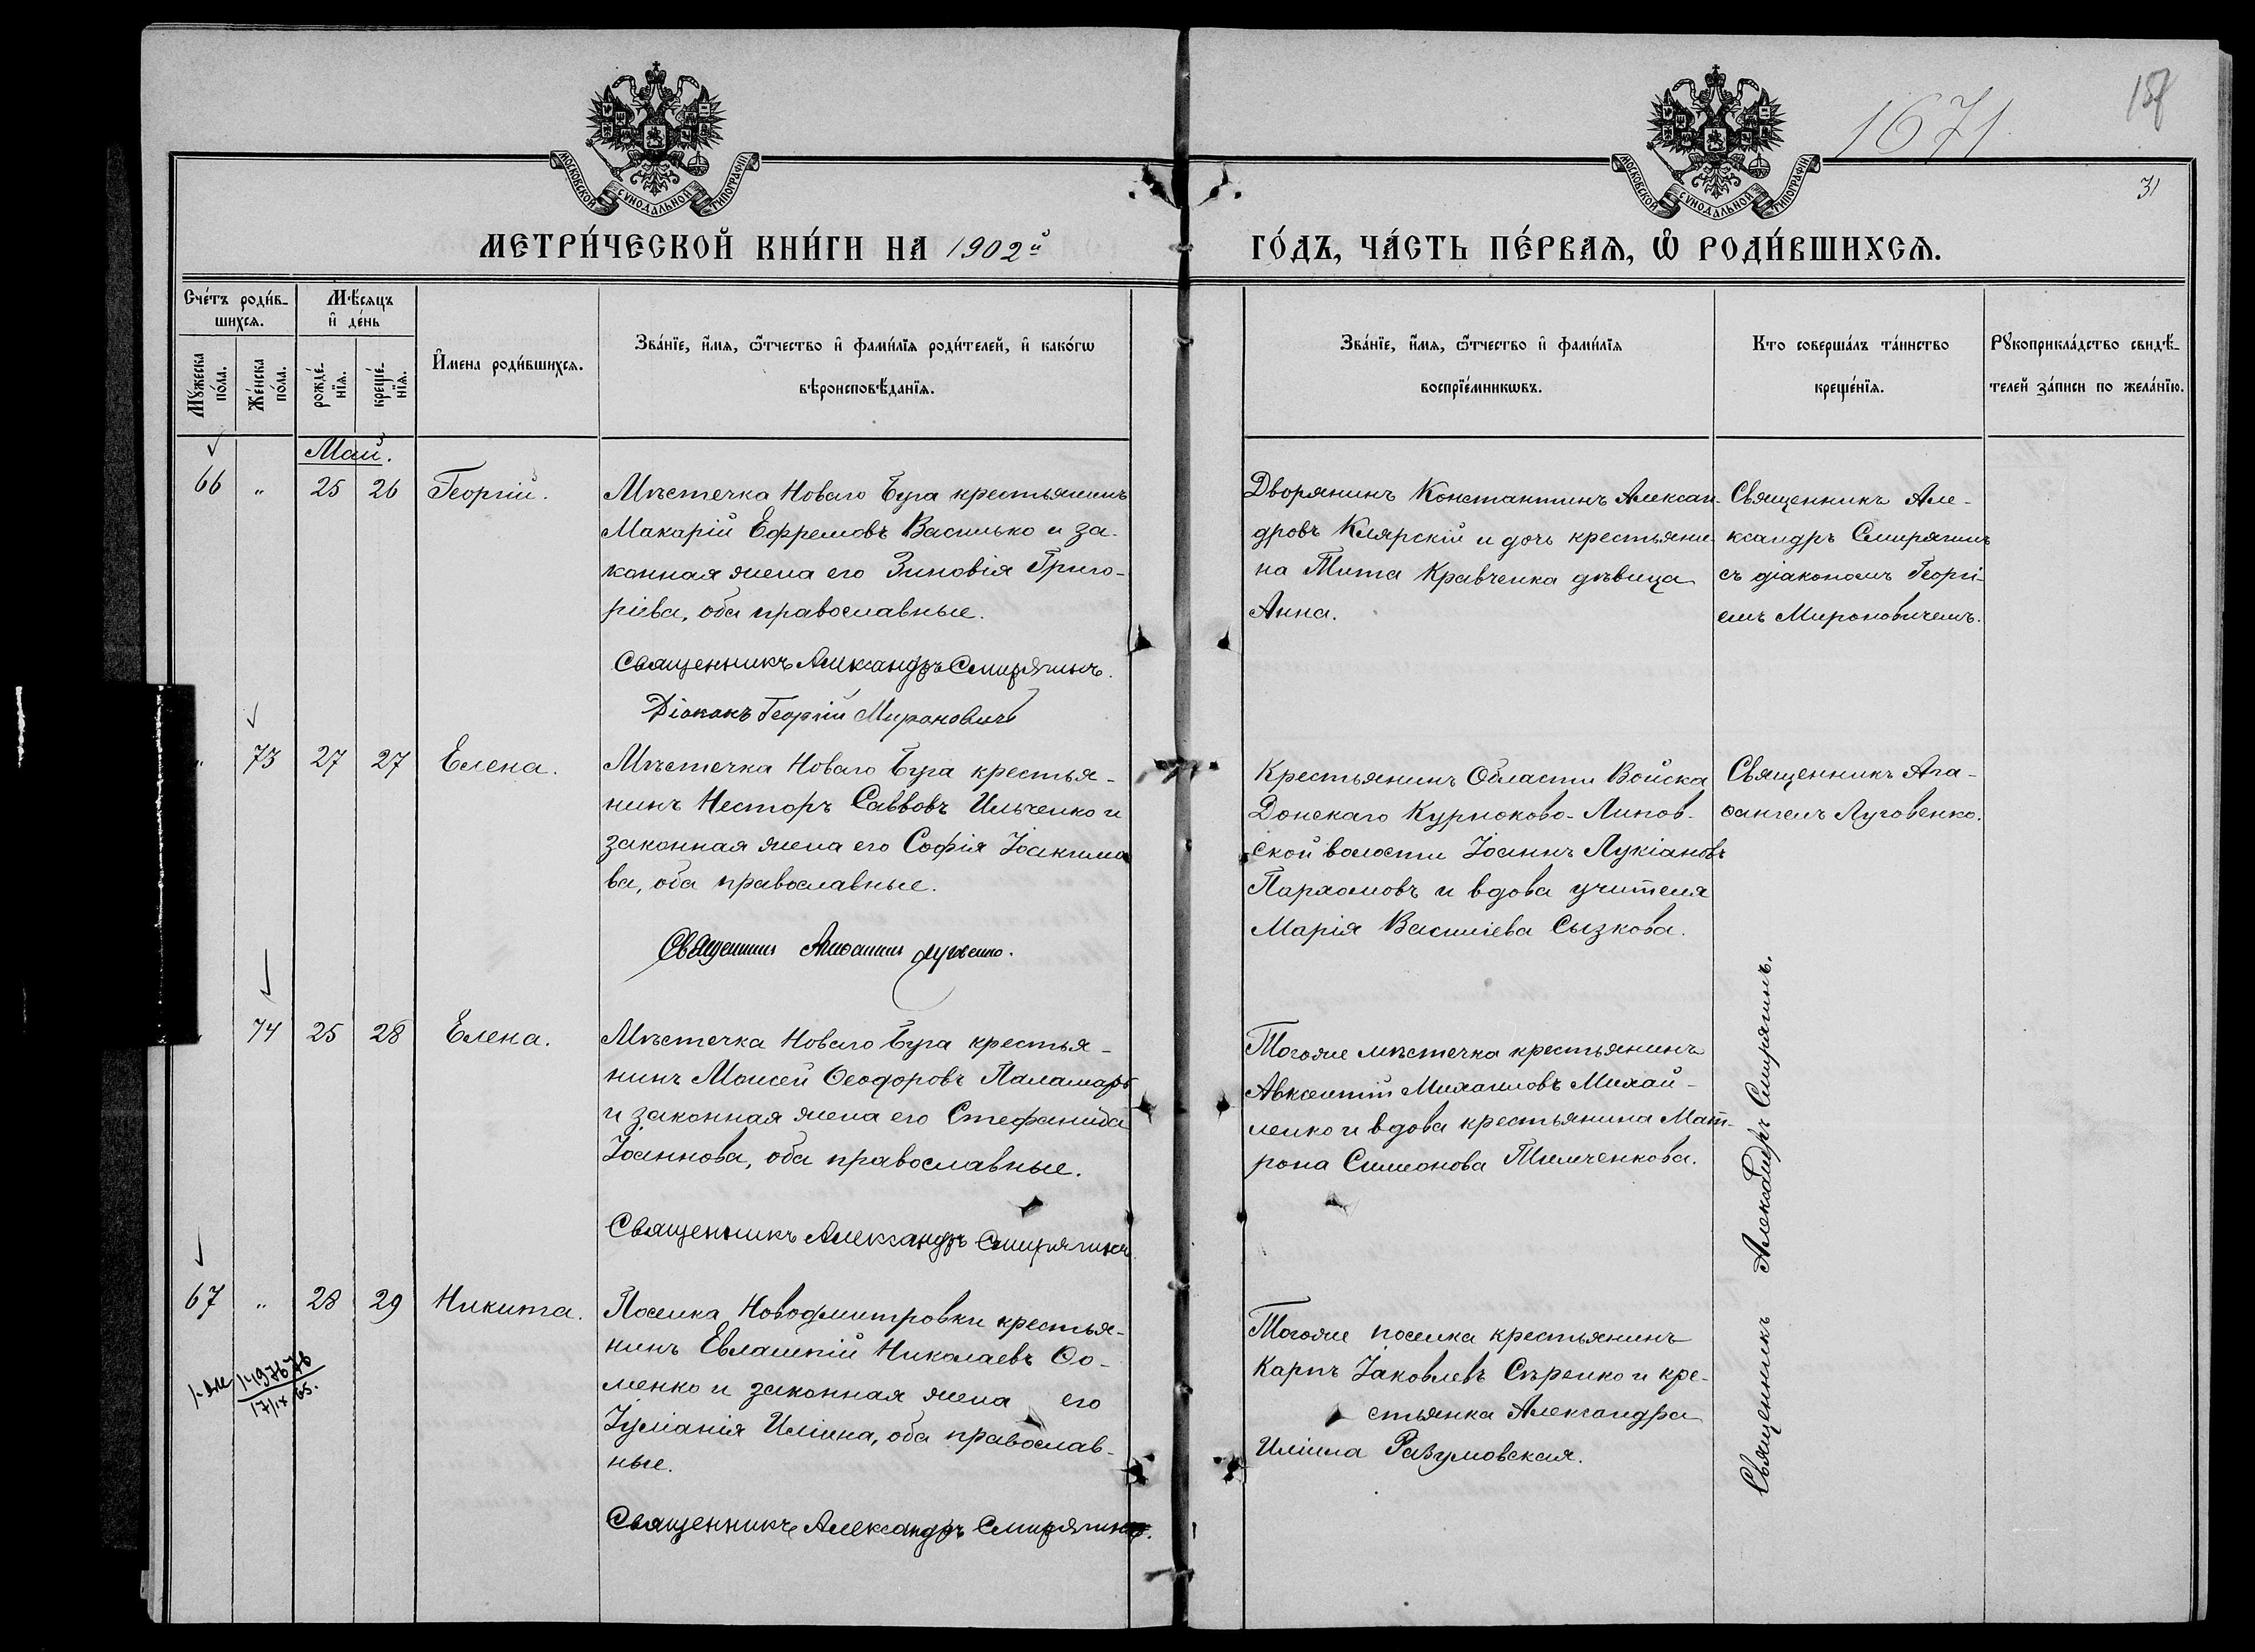 1671
157
31
МОСКОВСКОЙ СѴНОДАЛЬНОЙ ТИПОГРАФІИ
МОСКОВСКОЙ СѴНОДАЛЬНОЙ ТИПОГРАФІИ
МЕТРИ́ЧЕСКОЙ КНИ́ГИ НА 1902й
ГО́ДЪ, ЧА́СТЬ ПЕ́РВАѦ, Ѡ РОДИ́ВШИХСѦ.
Сче́тъ роди́в-
шихсѧ.
Мꙋжеска
по́ла.
Же́нска
по́ла.
Мѣ́сѧцъ
и҆ де́нь
рожде́-
нїѧ.
креще́-
нїѧ.
И҆мена роди́вшихсѧ.
Зва́нїе, и҆́мѧ, ѻ҆́тчество и҆ фами́лїѧ роди́телей, и҆ како́гѡ
вѣроисповѣ́данїѧ.
Зва́нїе, и҆́мѧ, ѻ҆́тчество и҆ фами́лїѧ
воспрїе́мникѡвъ.
Кто соверша́лъ та́инство
креще́нїѧ.
Рꙋкоприкла́дство свидѣ́-
телей за́писи по жела́нїю.
Май.
66 " 25 26 Георгій.
Мѣстечка Новаго Буга крестьянинъ
Макарій Ефремовъ Василько и за-
конная жена его Зиновія Григо-
ріева, оба православные.
Священникъ Александръ Смирягинъ.
Діаконъ Георгій Мироновичъ
Дворянинъ Константинъ Алексан-
дровъ Клярскій и дочь крестьяни-
на Тита Кравченка дѣвица
Анна.
Священникъ Але-
ксандръ Смирягинъ
съ діакономъ Георгі-
емъ Мироновичемъ.
" 73 27 27 Елена.
Мѣстечка Новаго Буга крестья-
нинъ Несторъ Саввовъ Ильченко и
законная жена его Софія Іоакимо
ва, оба православные.
Священникъ Агаѳангелъ Луговенко.
Крестьянинъ Области Войска
Донскаго Курноково-Липов-
ской волости Іоаннъ Лукіановъ
Пархомовъ и вдова учителя
Марія Василіева Сызкова.
Священникъ Ага-
ѳангелъ Луговенко.
74 25 28 Елена.
Мѣстечка Новаго Буга крестья-
нинъ Моисей Ѳеодоровъ Паламарь
и законная жена его Стефанида
Іоаннова, оба православные.
Священникъ Александръ Смирягинъ
Тогоже мѣстечка крестьянинъ
Авксентій Михаиловъ Михай-
ленко и вдова крестьянина Мат-
рона Симеонова Тимченкова.
Священникъ Александръ Смирягинъ.
67 " 28 29 Никита.
17/IX 65.
Поселка Новодмитровки крестья-
нинъ Евлампій Николаевъ Ѳо-
менко и законная жена его
Іуліанія Иліина, оба православ-
ные.
Священникъ Александръ Смирягинъ.
Тогоже поселка крестьянинъ
Карпъ Іаковлевъ Сѣренко и кре-
стьянка Александра
Иліина Разумовская.